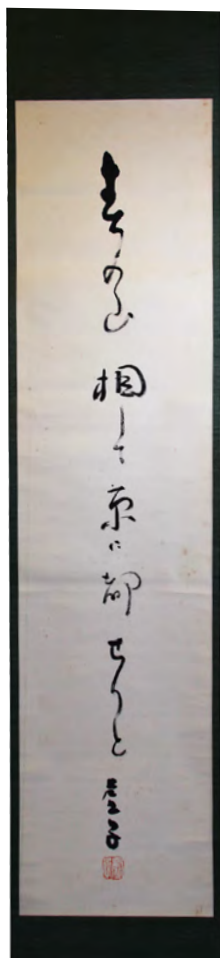 春の山相して京に都せりと 虚子